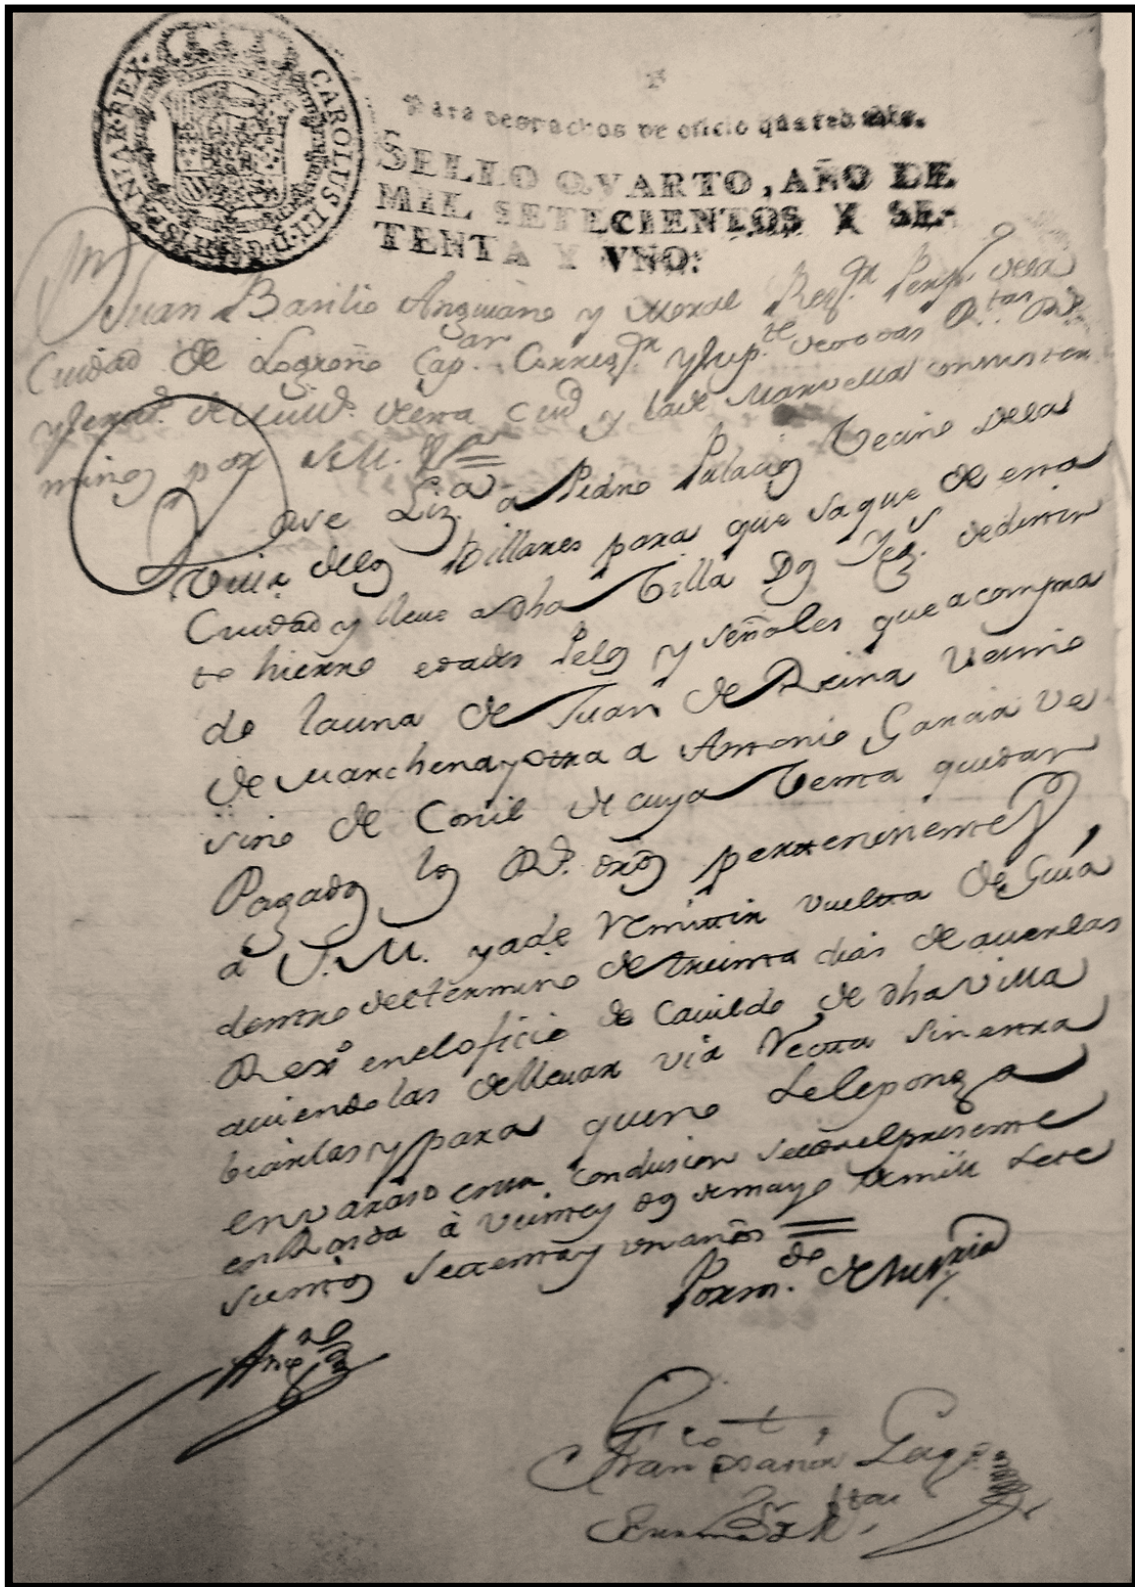 CAROLUS III D G HISPANIAR REX
Para despachos de oficio quatro mrs.
SELLO QVARTO, AÑO DE
MIL SETECIENTOS Y SE-
TENTA Y VNO:
Dn Juan Basilio Anguiano y Regr. Perp. dela
Ciudad de Logroño Cap. Corregr. y de Rtas
y desta Ciud y
por S.M. 
Doy Liza. a Pedro Palacios Vecino dela
Villa delos Villares para que saque de esta
Ciudad y lleve a dha Villa Dos de distin
to hierro edades Pelos y señales que a compra
do launa de Juan de Reina Vecino
de Marchena y otra a Antonio Garcia Ve
sino de Conil de cuya Venta quedan
Pagados los Rs. dros pertenecientes
a S.M. y a de Remitir vuelta de Guia
dentro del termino de treinta dias de averlas
Rexdo en el oficio de Cavildo de dha Villa
aviendolas de llevar via Recta sin estra
biarlas y para que no se le ponga
envaraso en su condusion se da el presente
en Ronda à Veinte y dos de mayo de mill sete
sientos setenta y un años =
Por mdo. de su
Franco